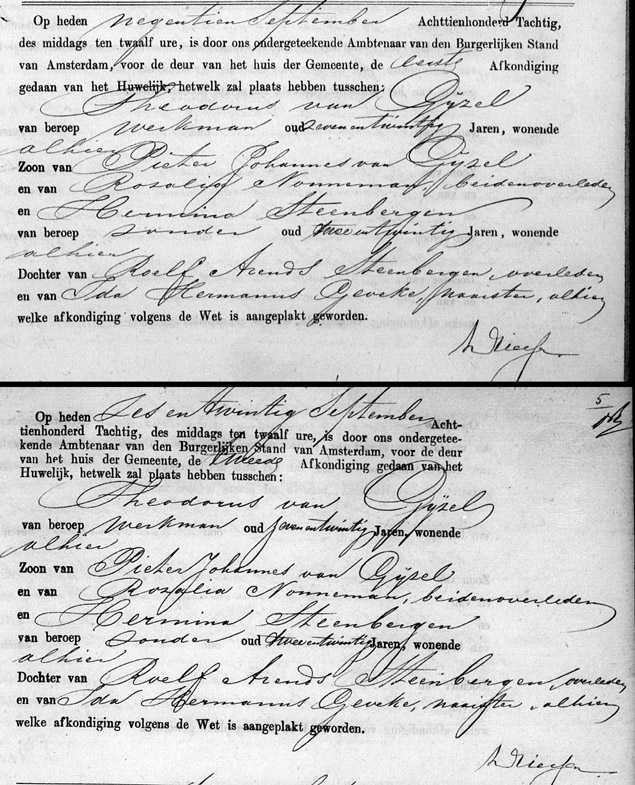 Op heden negentien September Achttienhonderd Tachtig,
des middags ten twaalf ure, is door ons ondergeteekende Ambtenaar van den Burgerlijken Stand
van Amsterdam, voor de deur van het huis der Gemeente, de eerste Afkondiging
gedaan van het Huwelijk, hetwelk zal plaats hebben tusschen:
Theodorus van Gijzel
van beroep Werkman oud zevenentwintig Jaren, wonende
alhier
Zoon van Pieter Johannes van Gijzel
en van Rosalia Nonneman, beiden overleden
en Hermina Steenbergen
van beroep zonder oud tweeentwintig Jaren, wonende
alhier
Dochter van Roelf Arends Steenbergen, overleden
en van Ida Hermannus Geveke, naaister, alhier
welke afkondiging volgens de Wet is aangeplakt geworden.
5
Op heden Zes en twintig September Acht-
tienhonderd Tachtig, des middags ten twaalf ure, is door ons ondergetee-
kende Ambtenaar van den Burgerlijken Stand van Amsterdam, voor de deur
van het huis der Gemeente, de tweede Afkondiging gedaan van het
Huwelijk, hetwelk zal plaats hebben tusschen:
Theodorus van Gijzel
van beroep Werkman oud zevenentwintig Jaren, wonende
alhier
Zoon van Pieter Johannes van Gijzel
en van Rozalia Nonneman, beiden overleden
en Hermina Steenbergen
van beroep zonder oud tweeentwintig Jaren, wonende
alhier
Dochter van Roelf Arends Steenbergen, overleden
en van Ida Hermannus Geveke, naaister, alhier
welke afkondiging volgens de Wet is aangeplakt geworden.